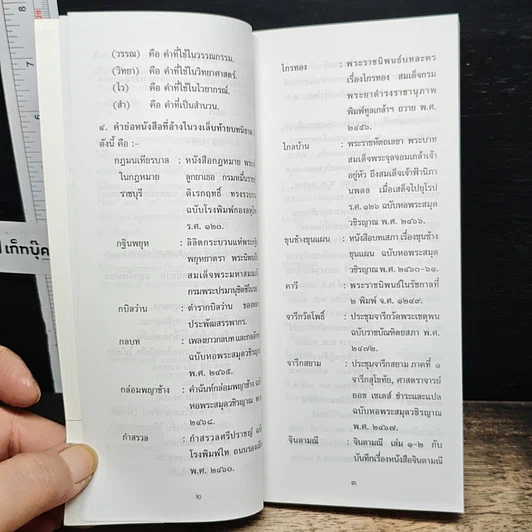 (วรรณ) คือ คำที่ใช้ในวรรณกรรม.
(วิทยา) คือ คำที่ใช้ในวิทยาศาสตร์.
(ไว) คือ คำที่ใช้ในไวยากรณ์.
(สำ) คือ คำที่เป็นสำนวน.
๔. คำย่อหนังสือที่อ้างในวงเล็บท้ายบทนิยาม
ดังนี้ คือ :-
กฎมนเทียรบาล : หนังสือกฎหมาย
ในกฎหมาย ลูกยาเธอ กรมหมื่น
ราชบุรี ดิเรกฤทธิ์
ฉบับโรงพิมพ์กอง
ร.ศ. ๑๒๐.
กฐินพยุห : ลิลิตกระบวนแห่
พยุหยาตรา พระนิพนธ์
สมเด็จพระมหาสมณ
กรมพระปรมานุชิตชิโนรส
กบิลว่าน : ตำรากบิลว่าน ของ
ประพัฒสรรพากร.
กลบท : เพลงยาวกลบทและกลอักษร
ฉบับหอพระสมุดวชิรญาณ
พ.ศ. ๒๔๖๕.
กล่อมพญาช้าง : คำฉันท์กล่อมพญาช้าง
หอพระสมุดวชิรญาณ พ.ศ.
๒๔๖๘.
กำสรวล : กำสรวลศรีปราชญ์
โรงพิมพ์ไท ถนนรองเมือง
พ.ศ. ๒๔๖๐.
๒
ไกรทอง : พระราชนิพนธ์บทละคร
เรื่องไกรทอง สมเด็จกรม
พระยาดำรงราชานุภาพ
พิมพ์ทูลเกล้าฯ ถวาย พ.ศ.
๒๔๕๖.
ไกลบ้าน : พระราชหัตถเลขา พระบาท
สมเด็จพระจุลจอมเกล้าเจ้า
อยู่หัว ถึงสมเด็จเจ้าฟ้านิภา
นพดล เมื่อเสด็จไปยุโรป
ร.ศ. ๑๒๖ ฉบับหอพระสมุด
วชิรญาณ พ.ศ. ๒๔๖๖.
ขุนช้างขุนแผน : หนังสือบทเสภา เรื่องขุนช้าง
ขุนแผน ฉบับหอพระสมุด
วชิรญาณ พ.ศ. ๒๔๖๐-๖๑.
คาวี : พระราชนิพนธ์ในรัชกาลที่
๒ พิมพ์ จ.ศ. ๑๒๔๗.
จารึกวัดโพธิ์ : ประชุมจารึกวัดพระเชตุพน
ฉบับราชบัณฑิตยสภา พ.ศ.
๒๔๗๒.
จารึกสยาม : ประชุมจารึกสยาม ภาคที่ ๑
จารึกสุโขทัย, ศาสตราจารย์
ยอช เซเดส์ ชำระและแปล
ฉบับหอพระสมุดวชิรญาณ
พ.ศ. ๒๔๖๗.
จินดามณี : จินดามณี เล่ม ๑-๒ กับ
บันทึกเรื่องหนังสือจินดามณี
๓
เก็ทบุ๊ค